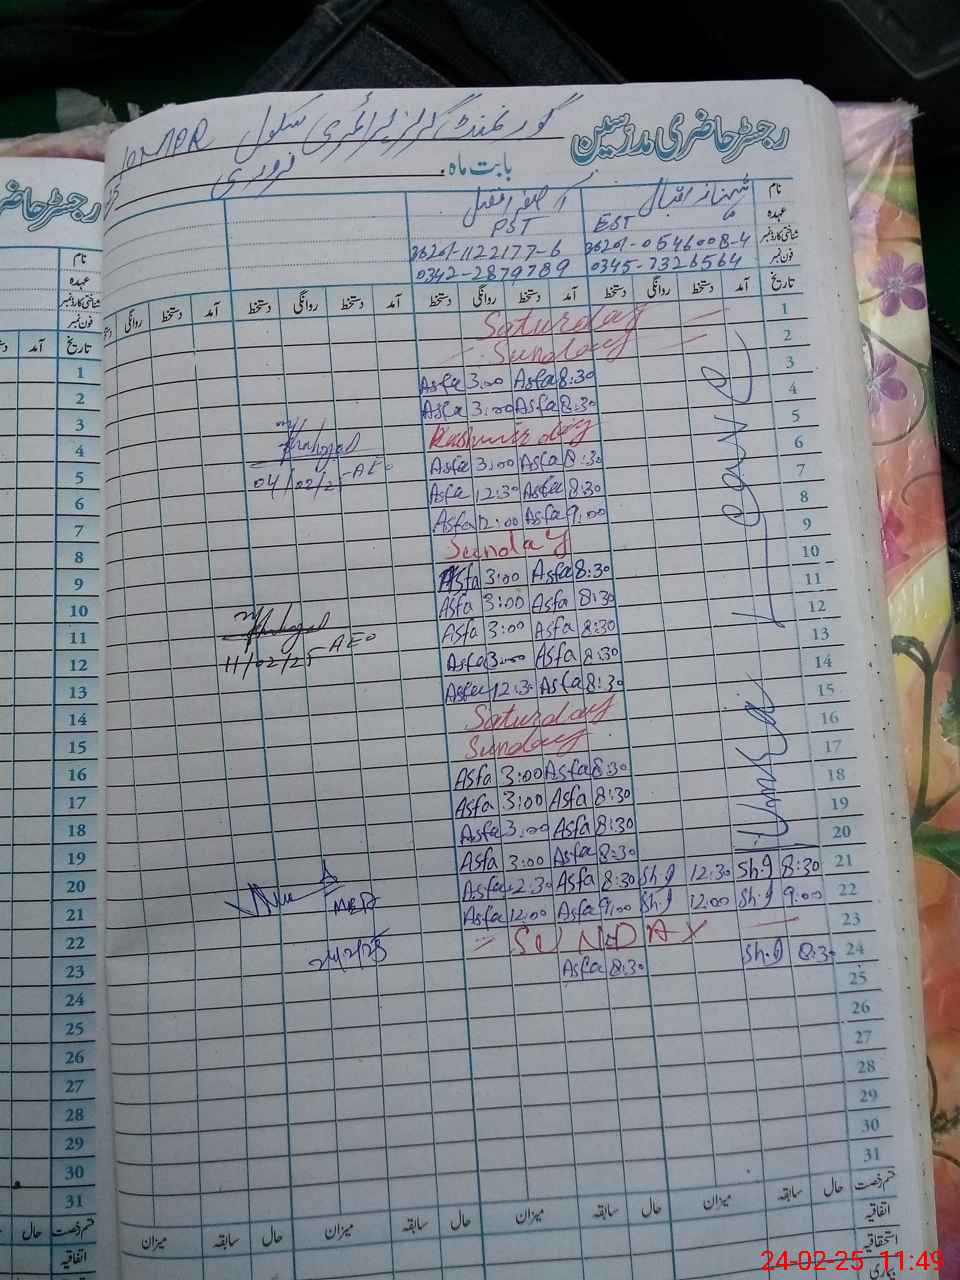 رجسٹر حاضری مدرسین
گورنمنٹ گرلز پرائمری سکول
بابت ماہ. فروری
نام
شہناز اقبال
عہدہ
EST PST
شناختی کارڈ نمبر
36201-0546008-4 36201-1122177-6
فون نمبر
0345-7326564 0342-2879789
تاریخ آمد دستخط روانگی دستخط آمد دستخط روانگی دستخط آمد دستخط روانگی دستخط آمد دستخط روانگی
1 Saturday
2 Sunday
3 Asfa 3:00 Asfa 8:30
4 Asfa 3:00 Asfa 8:30
5 Kashmir day
6 Asfa 3:00 Asfa 8:30
7 Asfa 12:30 Asfa 8:30
8 Asfa 12:00 Asfa 9:00
9 Sunday
10 Asfa 3:00 Asfa 8:30
11 Asfa 3:00 Asfa 8:30
12 Asfa 3:00 Asfa 8:30
13 Asfa 3:00 Asfa 8:30
14 Asfa 12:30 Asfa 8:30
15 Saturday
16 Sunday
17 Asfa 3:00 Asfa 8:30
18 Asfa 3:00 Asfa 8:30
19 Asfa 3:00 Asfa 8:30
20 Asfa 3:00 Asfa 8:30
21 Asfa 12:30 Asfa 8:30 Sh.I 12:30 Sh.I 8:30
22 Asfa 12:00 Asfa 9:00 Sh.I 12:00 Sh.I 9:00
23 SUNDAY
24 Asfa 8:30 Sh.I 8:30
25
26
27
28
29
30
31
Umra Leave
04/02/25 AEO
11/02/25 AEO
MEA
24/2/25
قسم رخصت حال سابقہ میزان حال سابقہ میزان حال سابقہ میزان حال سابقہ میزان
اتفاقیہ
استحقاقیہ
بیماری
رجسٹر حاضری
نام
عہدہ
شناختی کارڈ نمبر
فون نمبر
تاریخ آمد
1
2
3
4
5
6
7
8
9
10
11
12
13
14
15
16
17
18
19
20
21
22
23
24
25
26
27
28
29
30
31
قسم رخصت حال سابقہ
اتفاقیہ
24-02-25 11:49